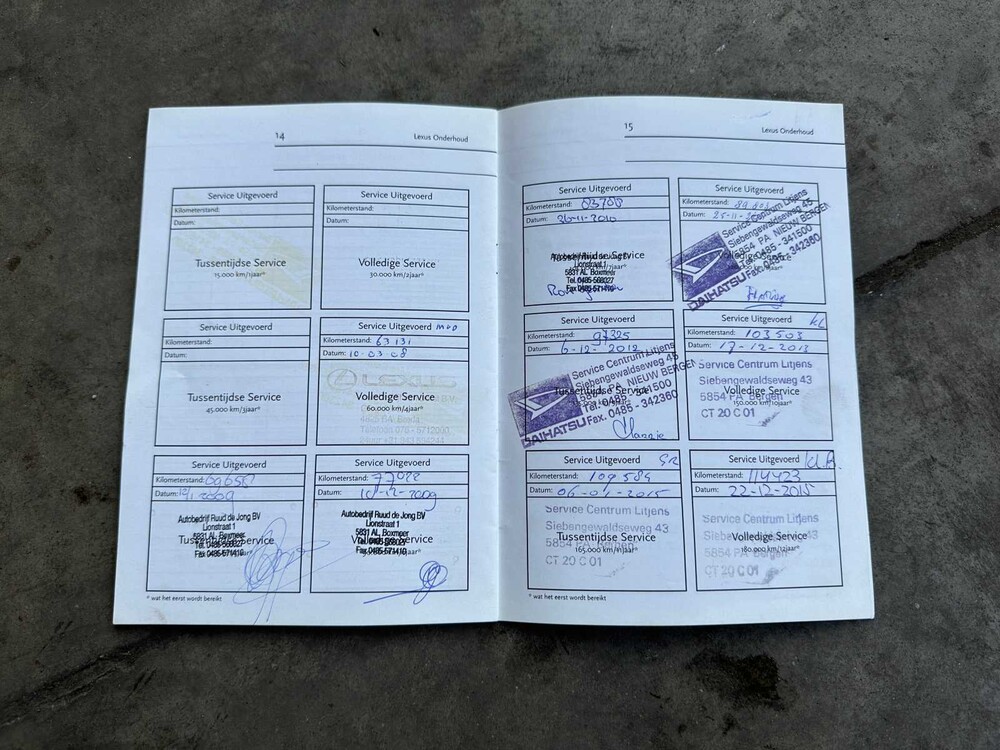 14
Lexus Onderhoud
Service Uitgevoerd
Kilometerstand:
Datum:
Tussentijdse Service
15.000 km/1jaar*
Service Uitgevoerd
Kilometerstand:
Datum:
Volledige Service
30.000 km/2jaar*
Service Uitgevoerd
Kilometerstand:
Datum:
Tussentijdse Service
45.000 km/3jaar*
Service Uitgevoerd
Kilometerstand: 63131
Datum: 10-03-08
LEXUS
Volledige Service
60.000 km/4jaar*
Service Uitgevoerd
Kilometerstand:
Datum:
Autobedrijf Ruud de Jong BV
Lionstraat 1
5831 AL Boxmeer
Tel. 0485-568027
Fax 0485-571410
Service Uitgevoerd
Kilometerstand: 77022
Datum: 10-12-2009
Autobedrijf Ruud de Jong BV
Lionstraat 1
5831 AL Boxmeer
Fax 0485-571410
* wat het eerst wordt bereikt
15
Lexus Onderhoud
Service Uitgevoerd
Kilometerstand:
Datum: 26-11-2010
Lionstraat 1
5831 AL Boxmeer
Tel. 0485-568027
Fax 0485-571410
Service Uitgevoerd
Kilometerstand:
Datum:
Service Centrum Litjens
Siebengewaldseweg 45
5854 PA NIEUW BERGEN
Tel. 0485 - 341500
Fax. 0485 - 342360
DAIHATSU
Service Uitgevoerd
Kilometerstand: 97325
Datum: 6-12-2012
Service Centrum Litjens
Siebengewaldseweg 45
5854 PA NIEUW BERGEN
Tel. 0485 - 341500
Fax. 0485 - 342360
DAIHATSU
Tussentijdse Service
Service Uitgevoerd
Kilometerstand: 103503
Datum: 17-12-2013
Service Centrum Litjens
Siebengewaldseweg 43
Volledige Service
5854 PA Bergen
150.000 km/10jaar*
CT 20 C 01
Service Uitgevoerd
Kilometerstand: 109584
Datum: 06-01-2015
Service Centrum Litjens
Siebengewaldseweg 43
Tussentijdse Service
5854 PA Bergen
165.000 km/11jaar*
CT 20 C 01
Service Uitgevoerd
Kilometerstand: 114423
Datum: 22-12-2015
Service Centrum Litjens
Siebengewaldseweg 43
Volledige Service
5854 PA Bergen
180.000 km/12jaar*
CT 20 C 01
* wat het eerst wordt bereikt